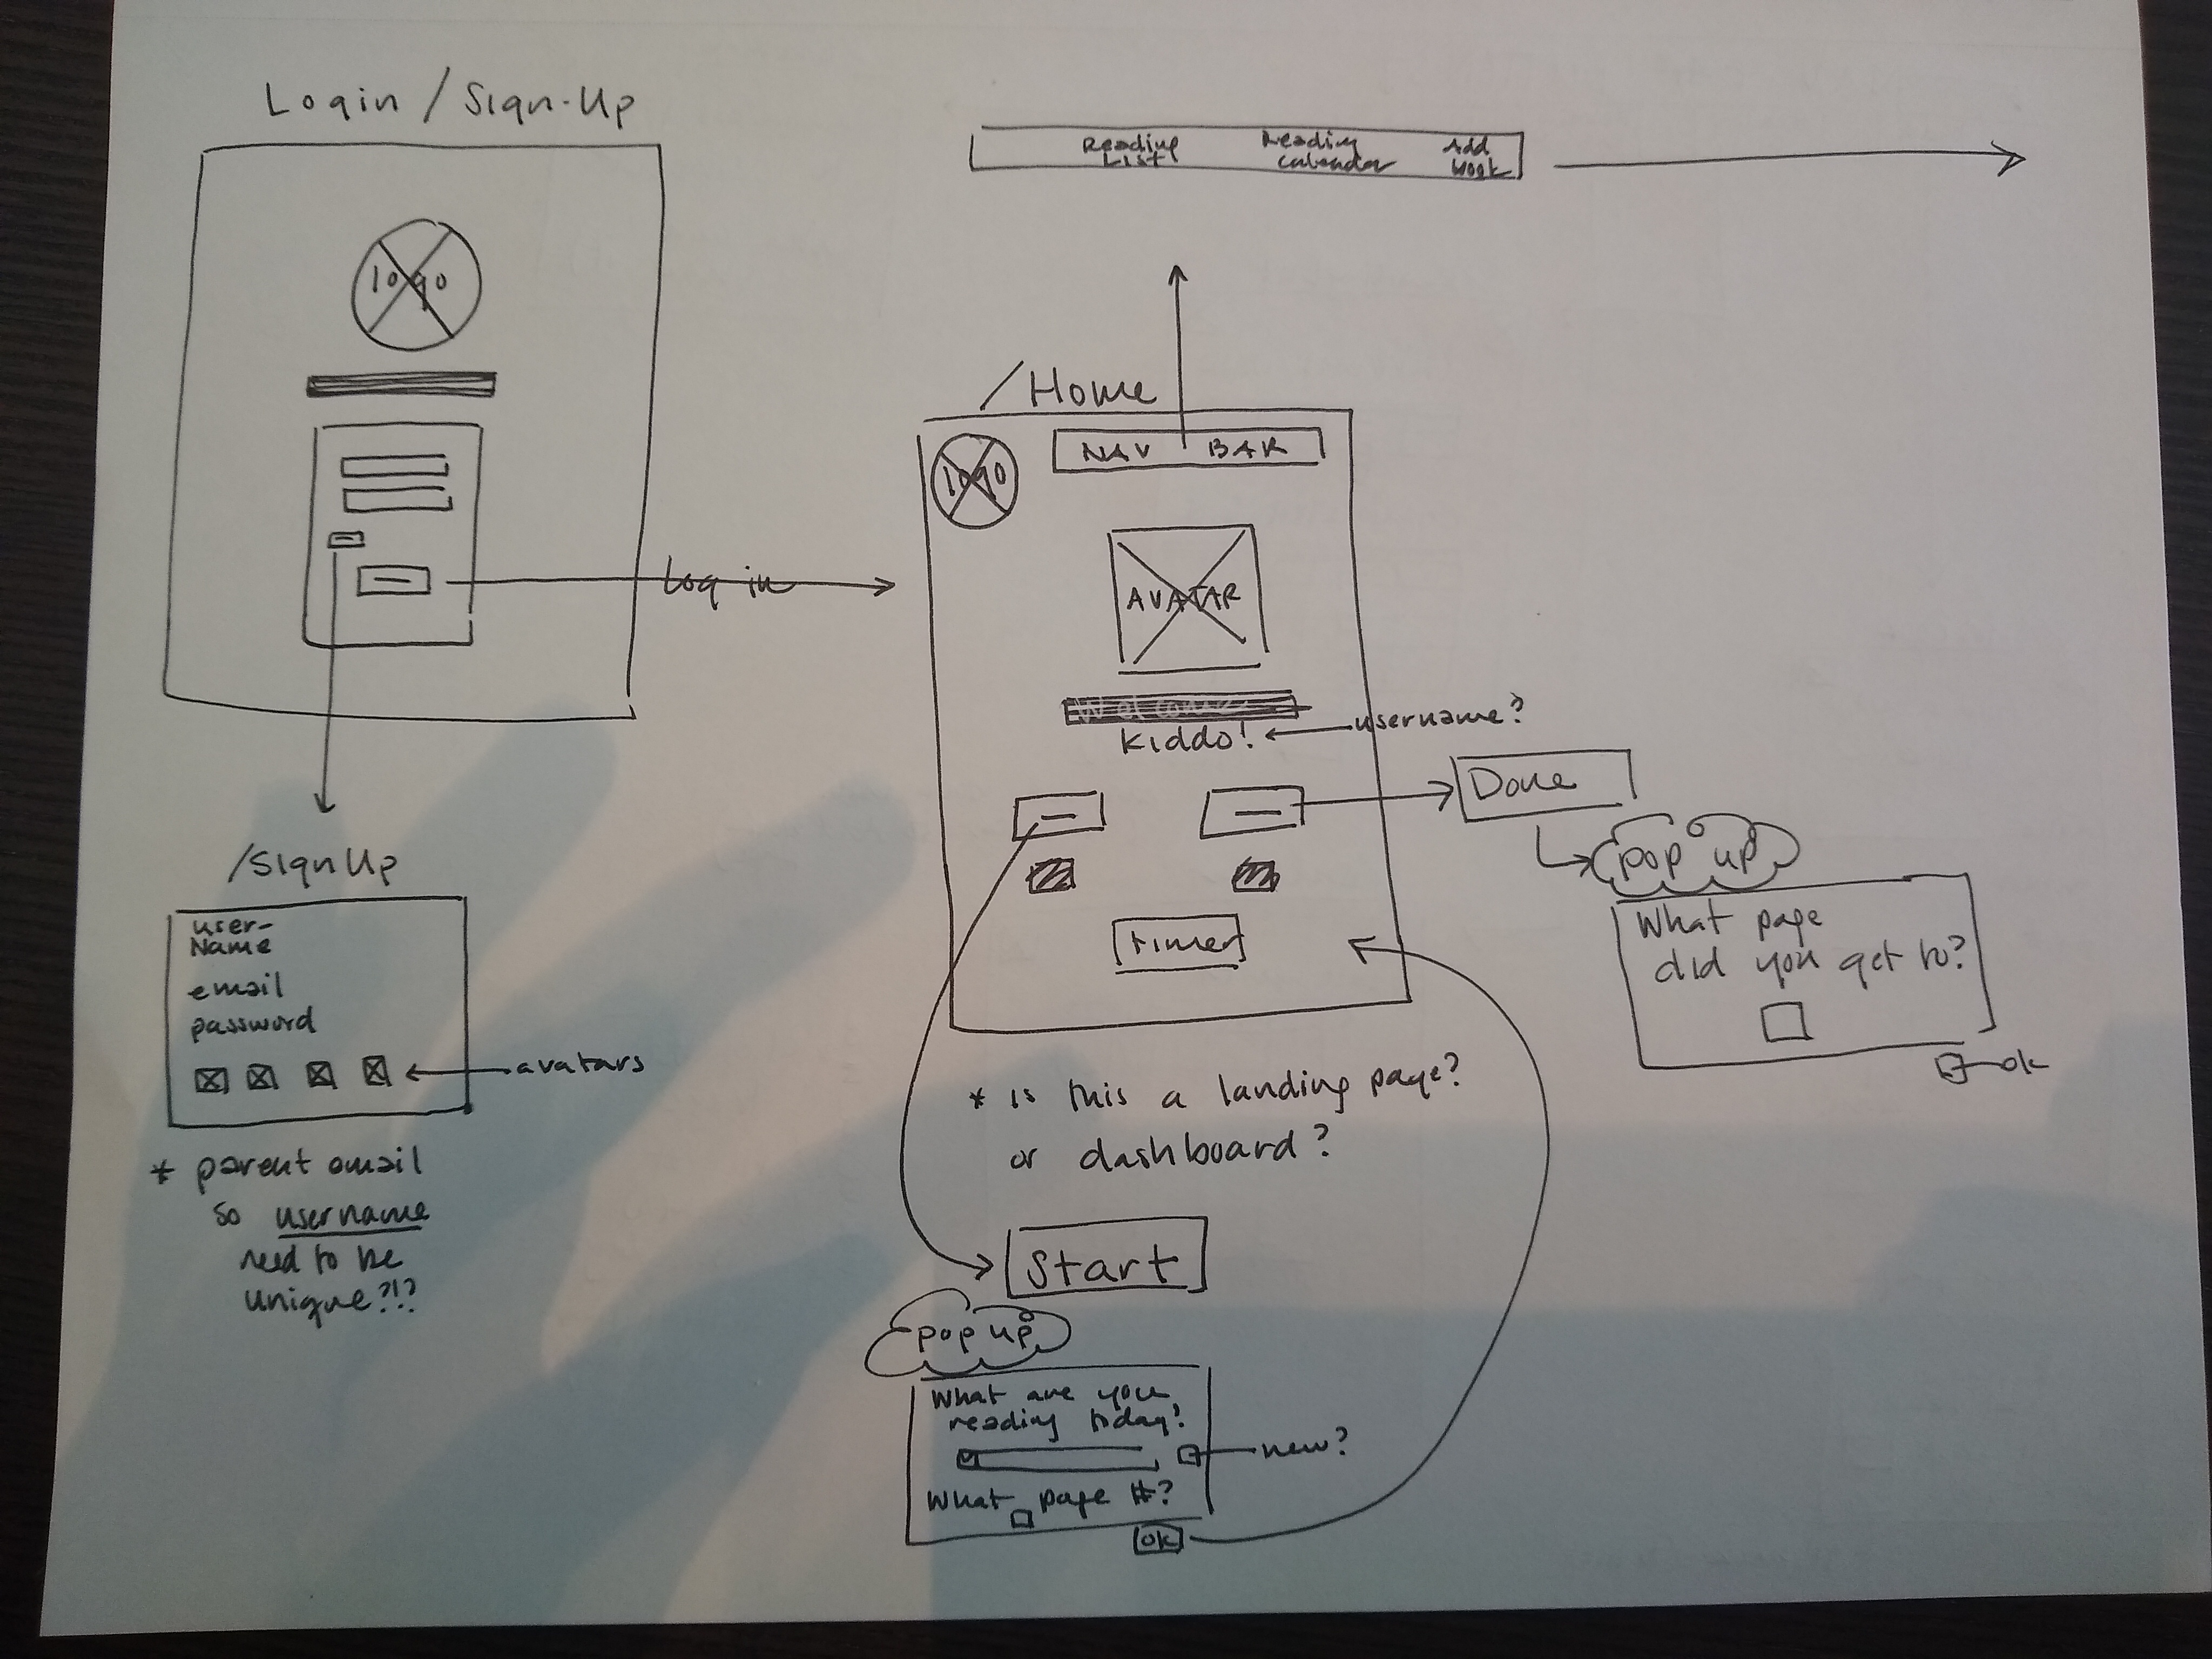 Login / Sign-Up
logo
Log in
/SignUp
user-
Name
email
password
avatars
* parent email
so username
need to be
unique?!?
Reading
List
Reading
Calendar
Add
Book
/Home
logo
NAV BAR
AVATAR
Welcome
Kiddo!
username?
timer
Done
pop up
What page
did you get to?
ok
* is this a landing page?
or dashboard?
Start
pop up
What are you
reading today?
new?
What page #?
ok